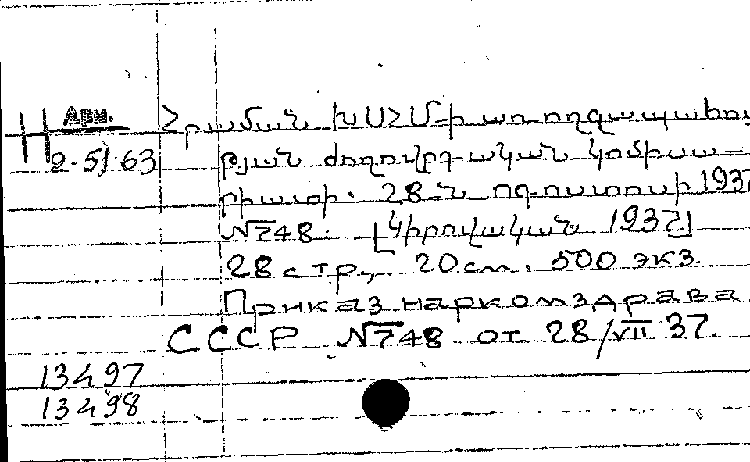 Арм.
Հրաման ԽՍՀՄ-ի առողջապահու
2-5/63
թյան ժողովրդական կոմիսա-
րիատի. 28-ն օգոստոսի 1937
№748. [Կիրովական 1937]
28 стр., 20 см. 500 экз.
Приказ наркомздрава
СССР №748 от 28/VII 37.
13497
13498